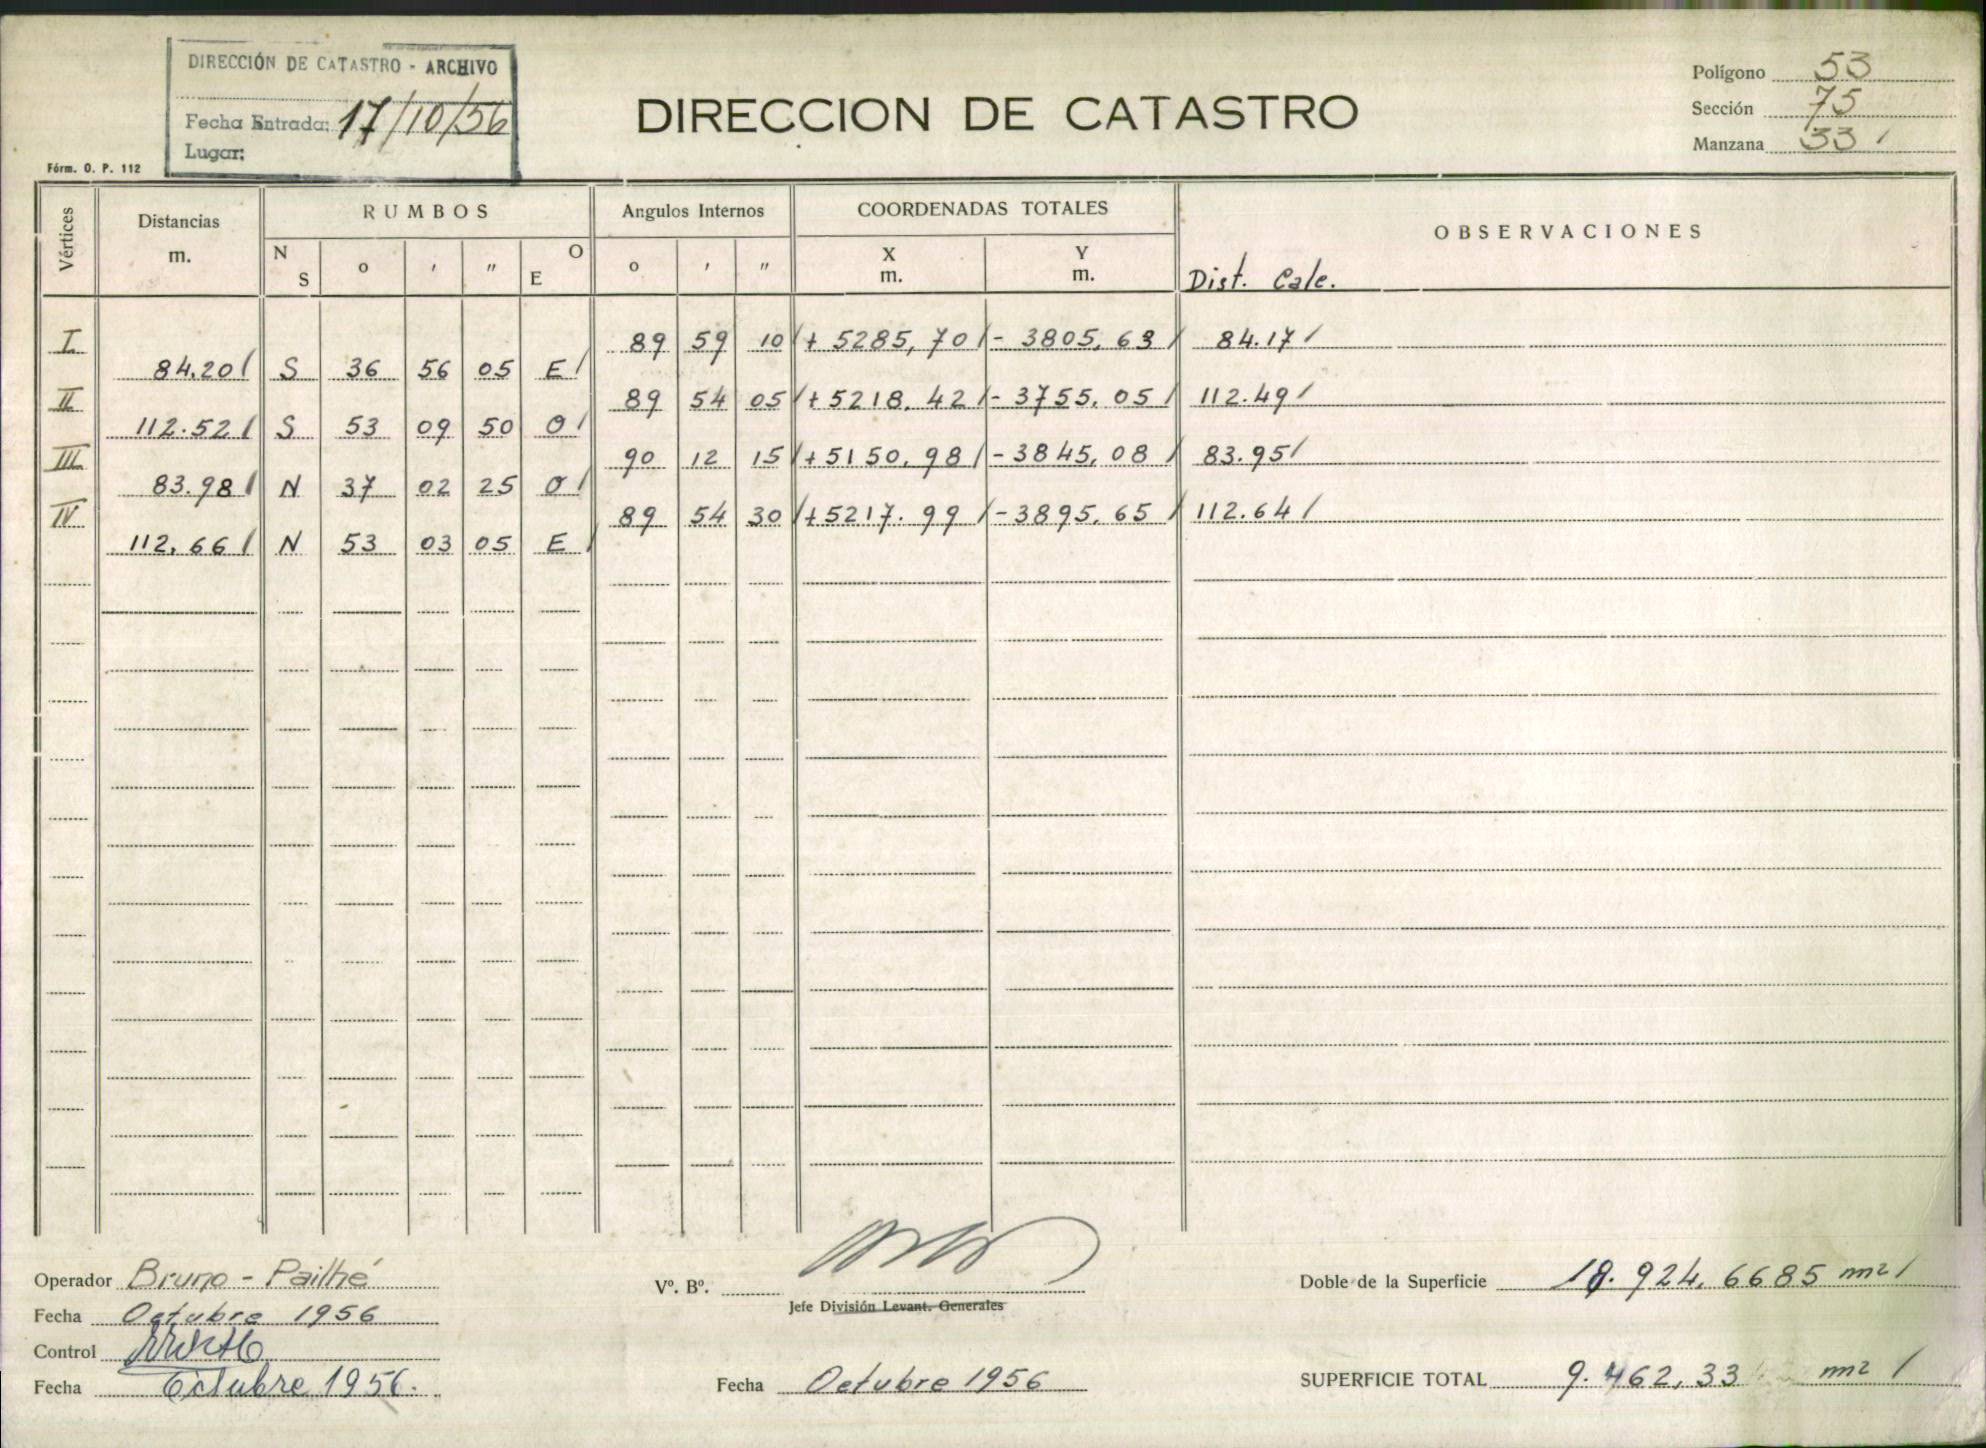 DIRECCIÓN DE CATASTRO - ARCHIVO
Fecha Entrada: 17/10/56
Lugar:
Fórm. O. P. 112
DIRECCION DE CATASTRO
Polígono 53
Sección 75
Manzana 33 /
Vértices
Distancias
m.
RUMBOS
N S ° ' " O E
Angulos Internos
° ' "
COORDENADAS TOTALES
X
m.
Y
m.
OBSERVACIONES
Dist. Calc.
I 89 59 10 / + 5285,70 / - 3805,63 / 84.17 /
84.20 / S 36 56 05 E /
II 89 54 05 / + 5218,42 / - 3755,05 / 112.49 /
112.52 / S 53 09 50 O /
III 90 12 15 / + 5150,98 / - 3845,08 / 83.95 /
83.98 / N 37 02 25 O /
IV 89 54 30 / + 5217.99 / - 3895,65 / 112.64 /
112,66 / N 53 03 05 E /
Operador Bruno - Pailhé
Fecha Octubre 1956
Control
Fecha Octubre 1956.
Vº. Bº.
Jefe División Levant. Generales
Fecha Octubre 1956
Doble de la Superficie 18.924,6685 m2 /
SUPERFICIE TOTAL 9.462,33 m2 /